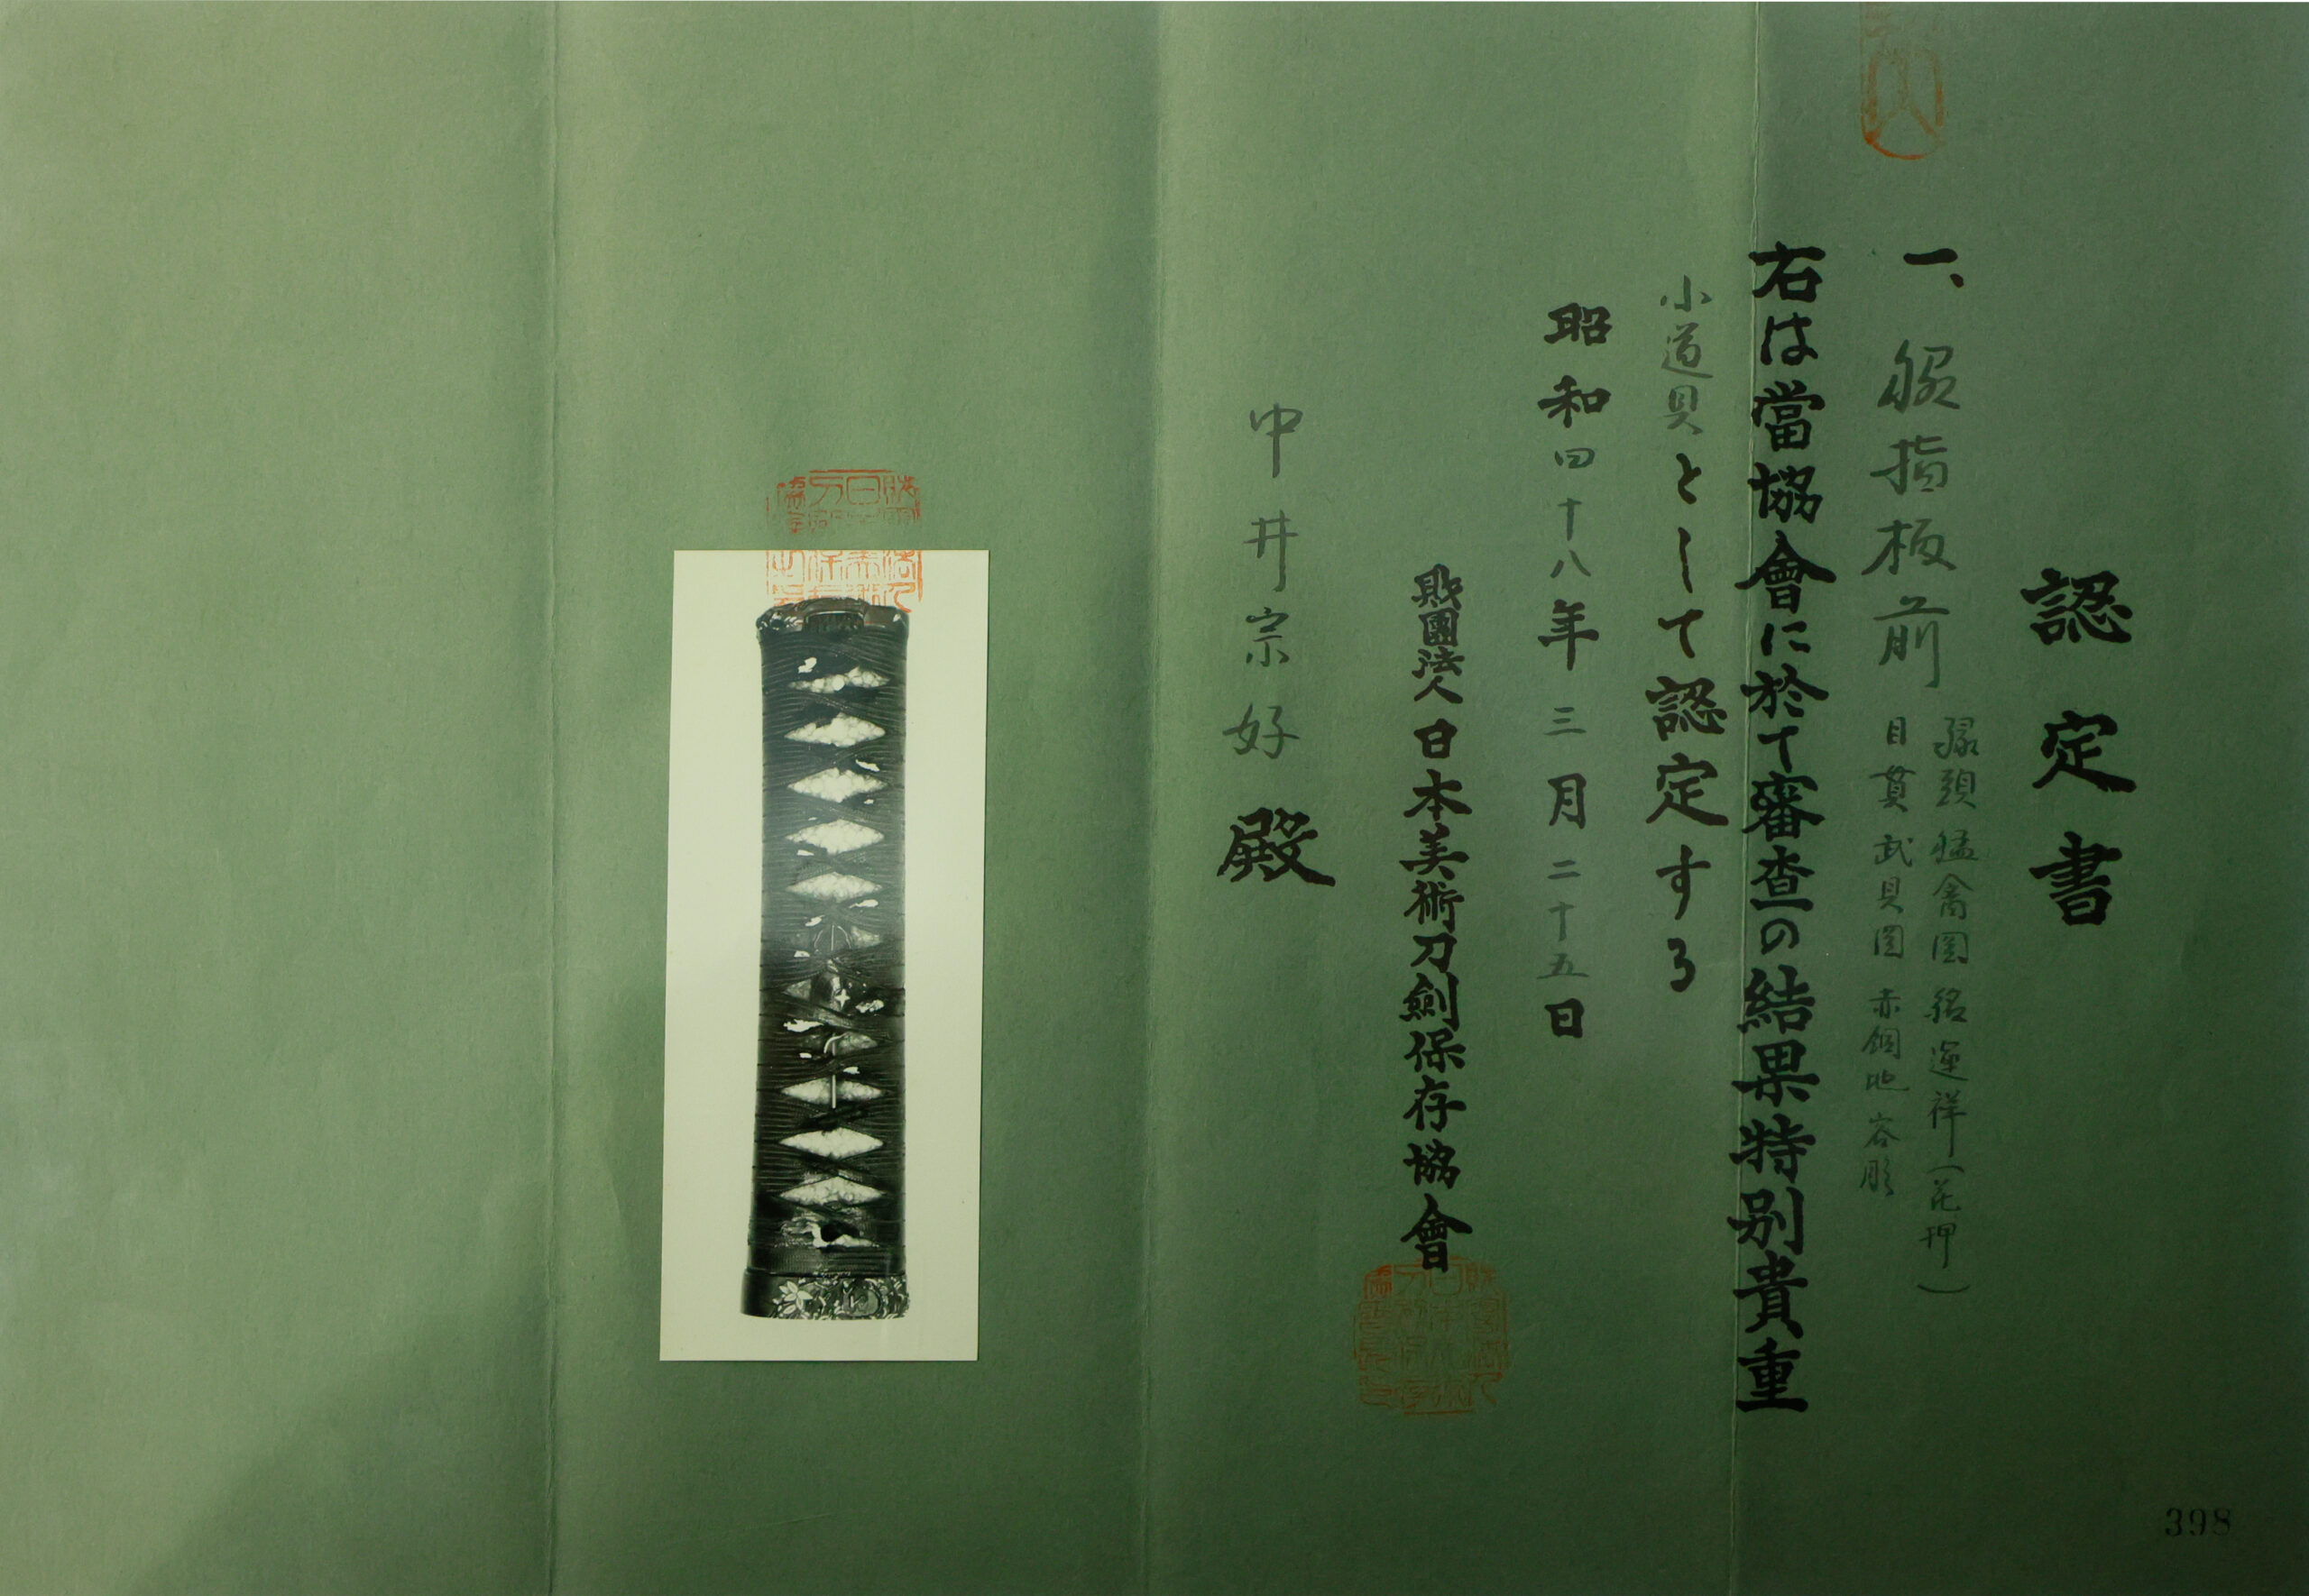 認定書
一、脇指拵前
縁頭 猛禽図 銘 運祥(花押)
目貫 武具図 赤銅地 容彫
右は當協會に於て審査の結果特別貴重
小道具として認定する
昭和四十八年三月二十五日
財團法人日本美術刀劍保存協會
中井宗好殿
398